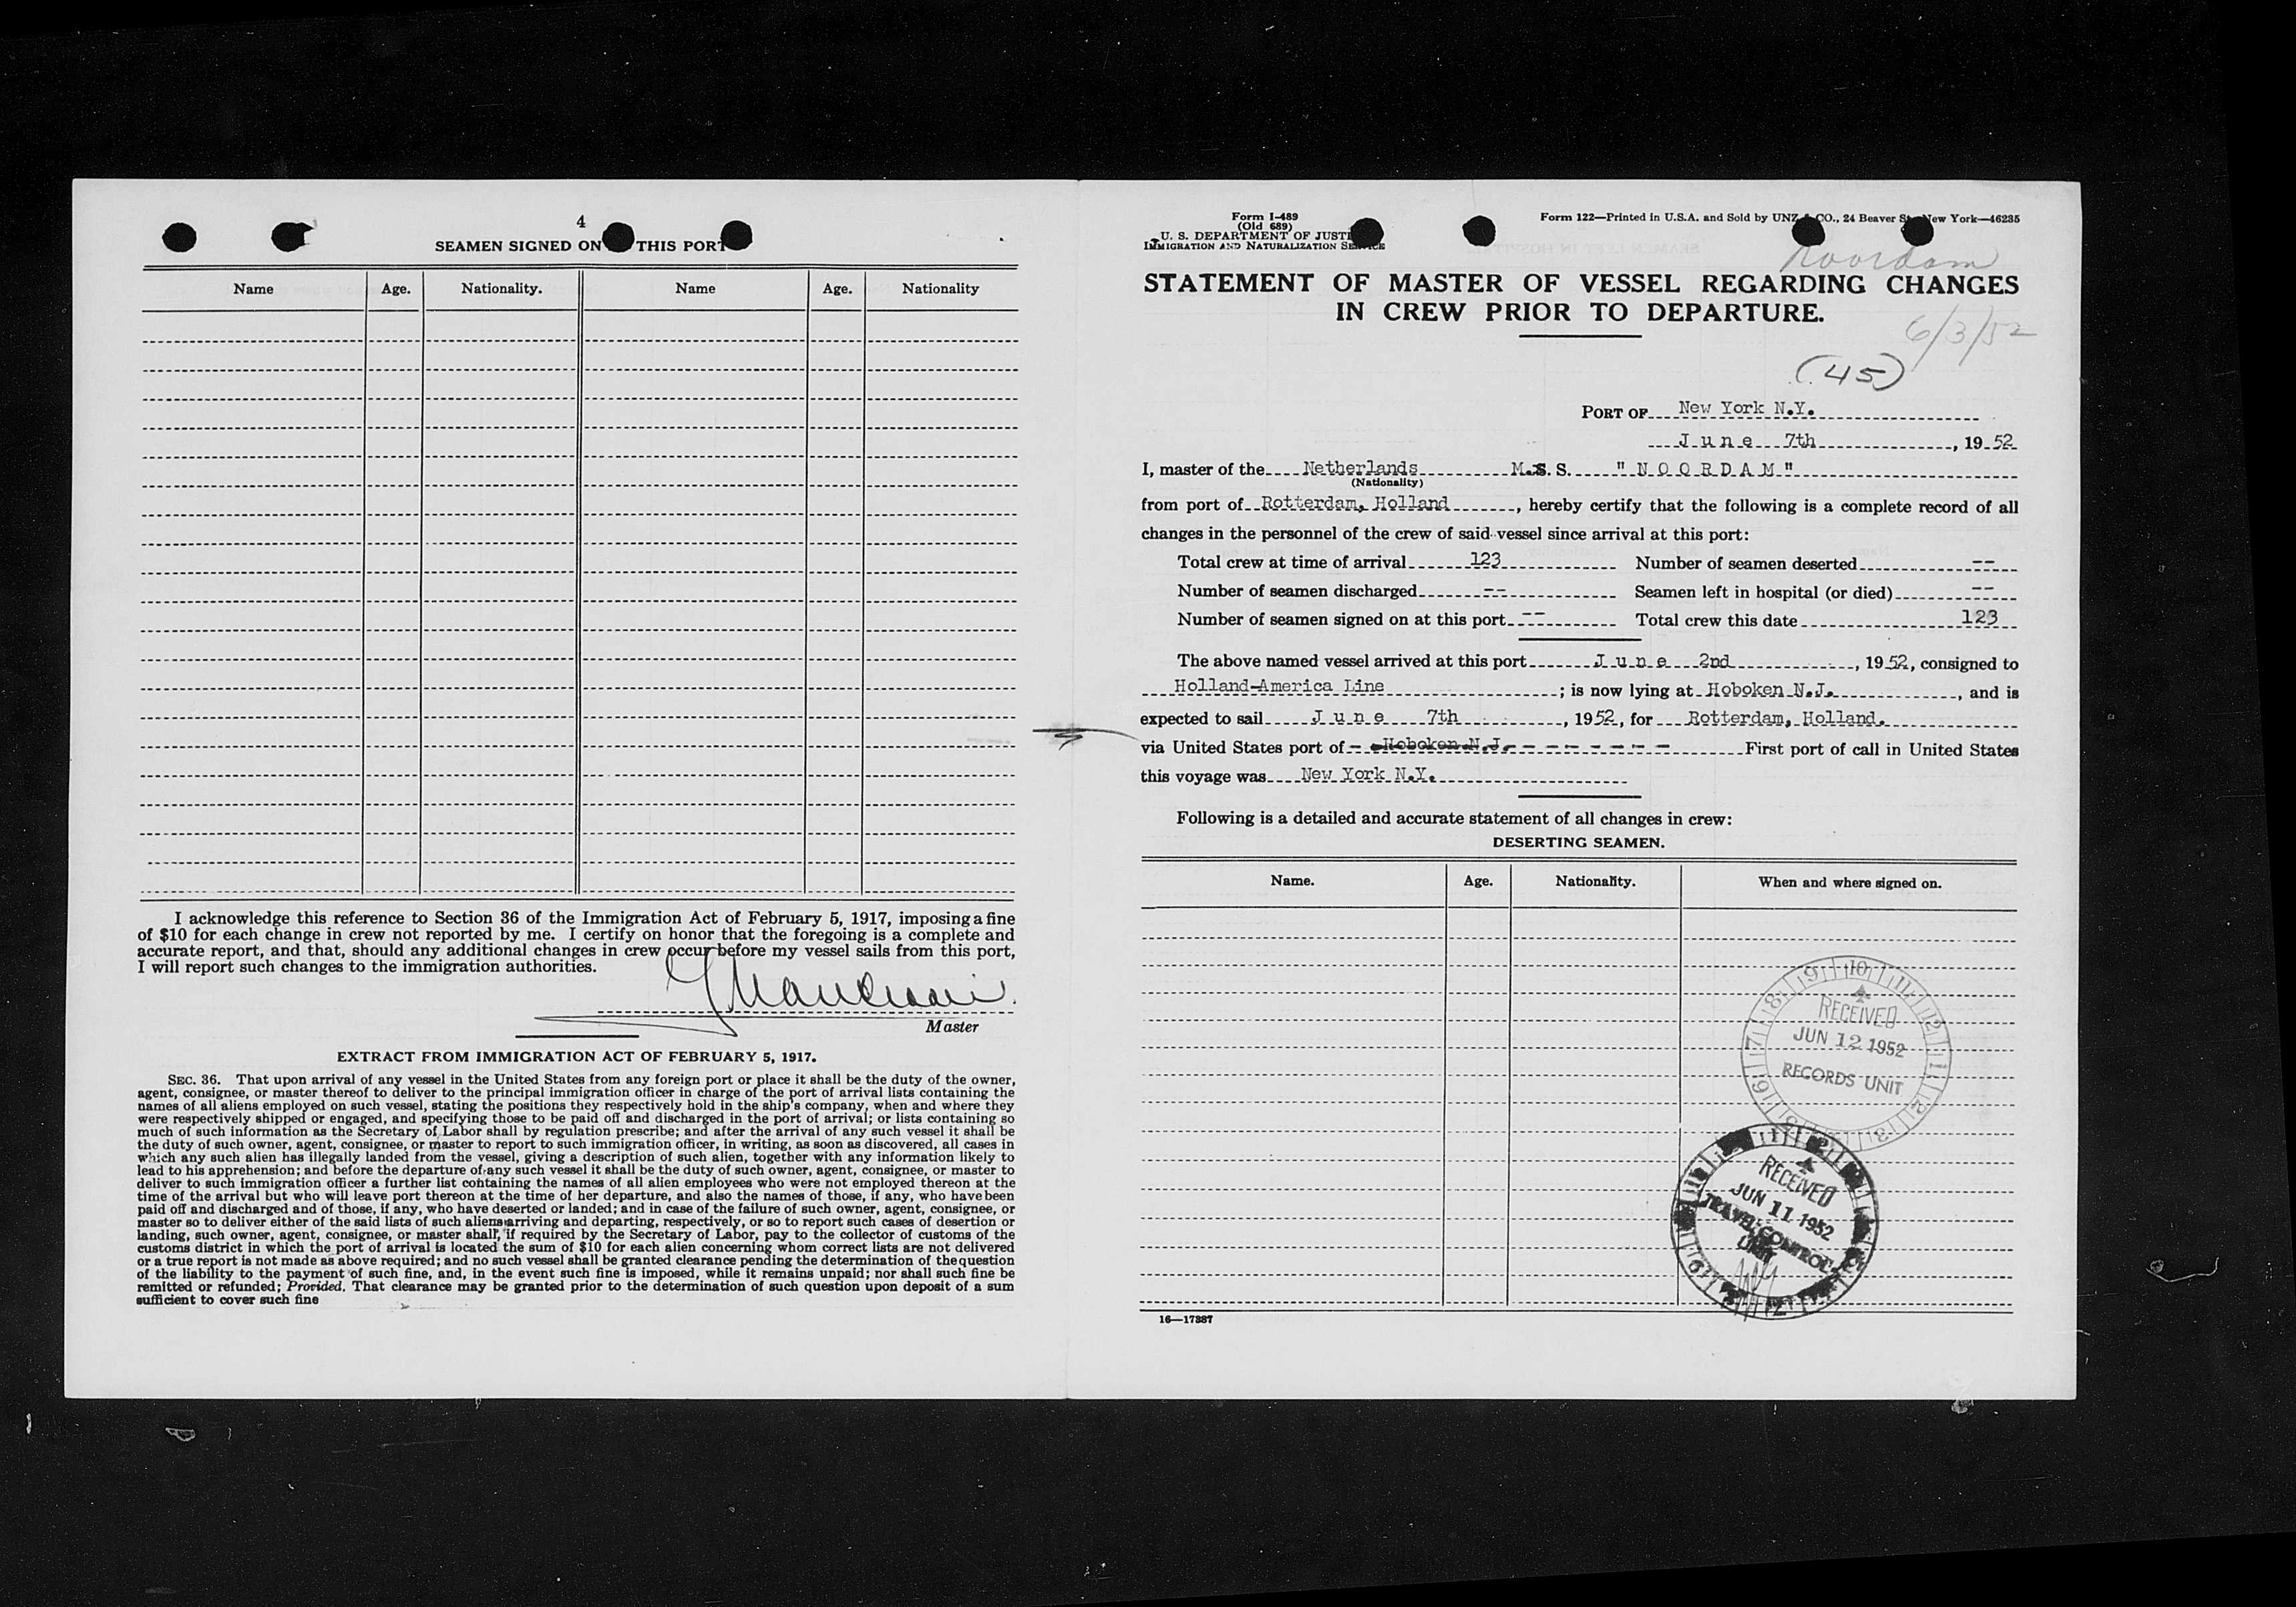 4
SEAMEN SIGNED ON THIS PORT
Name Age. Nationality. Name Age. Nationality
I acknowledge this reference to Section 36 of the Immigration Act of February 5, 1917, imposing a fine
of $10 for each change in crew not reported by me. I certify on honor that the foregoing is a complete and
accurate report, and that, should any additional changes in crew occur before my vessel sails from this port,
I will report such changes to the immigration authorities.
Master
EXTRACT FROM IMMIGRATION ACT OF FEBRUARY 5, 1917.
SEC. 36. That upon arrival of any vessel in the United States from any foreign port or place it shall be the duty of the owner,
agent, consignee, or master thereof to deliver to the principal immigration officer in charge of the port of arrival lists containing the
names of all aliens employed on such vessel, stating the positions they respectively hold in the ship's company, when and where they
were respectively shipped or engaged, and specifying those to be paid off and discharged in the port of arrival; or lists containing so
much of such information as the Secretary of Labor shall by regulation prescribe; and after the arrival of any such vessel it shall be
the duty of such owner, agent, consignee, or master to report to such immigration officer, in writing, as soon as discovered, all cases in
which any such alien has illegally landed from the vessel, giving a description of such alien, together with any information likely to
lead to his apprehension; and before the departure of any such vessel it shall be the duty of such owner, agent, consignee, or master to
deliver to such immigration officer a further list containing the names of all alien employees who were not employed thereon at the
time of the arrival but who will leave port thereon at the time of her departure, and also the names of those, if any, who have been
paid off and discharged and of those, if any, who have deserted or landed; and in case of the failure of such owner, agent, consignee, or
master so to deliver either of the said lists of such aliens arriving and departing, respectively, or so to report such cases of desertion or
landing, such owner, agent, consignee, or master shall, if required by the Secretary of Labor, pay to the collector of customs of the
customs district in which the port of arrival is located the sum of $10 for each alien concerning whom correct lists are not delivered
or a true report is not made as above required; and no such vessel shall be granted clearance pending the determination of the question
of the liability to the payment of such fine, and, in the event such fine is imposed, while it remains unpaid; nor shall such fine be
remitted or refunded; Provided, That clearance may be granted prior to the determination of such question upon deposit of a sum
sufficient to cover such fine
Form I-489
(Old 689)
U. S. DEPARTMENT OF JUSTI
IMMIGRATION AND NATURALIZATION SERVICE
Form 122—Printed in U.S.A. and Sold by UNZ & CO., 24 Beaver St., New York—46235
Noordam
STATEMENT OF MASTER OF VESSEL REGARDING CHANGES
IN CREW PRIOR TO DEPARTURE.
6/3/52
(45)
PORT OF New York N.Y.
June 7th, 1952
I, master of the Netherlands M.S.S. "NOORDAM"
(Nationality)
from port of Rotterdam, Holland, hereby certify that the following is a complete record of all
changes in the personnel of the crew of said vessel since arrival at this port:
Total crew at time of arrival 123 Number of seamen deserted --
Number of seamen discharged -- Seamen left in hospital (or died) --
Number of seamen signed on at this port -- Total crew this date 123
The above named vessel arrived at this port June 2nd, 1952, consigned to
Holland-America Line; is now lying at Hoboken N.J., and is
expected to sail June 7th, 1952, for Rotterdam, Holland.
via United States port of Hoboken N.J. First port of call in United States
this voyage was New York N.Y.
Following is a detailed and accurate statement of all changes in crew:
DESERTING SEAMEN.
Name. Age. Nationality. When and where signed on.
RECEIVED
JUN 12 1952
RECORDS UNIT
RECEIVED
JUN 11 1952
TRAVEL CONTROL
UNIT
16—17387